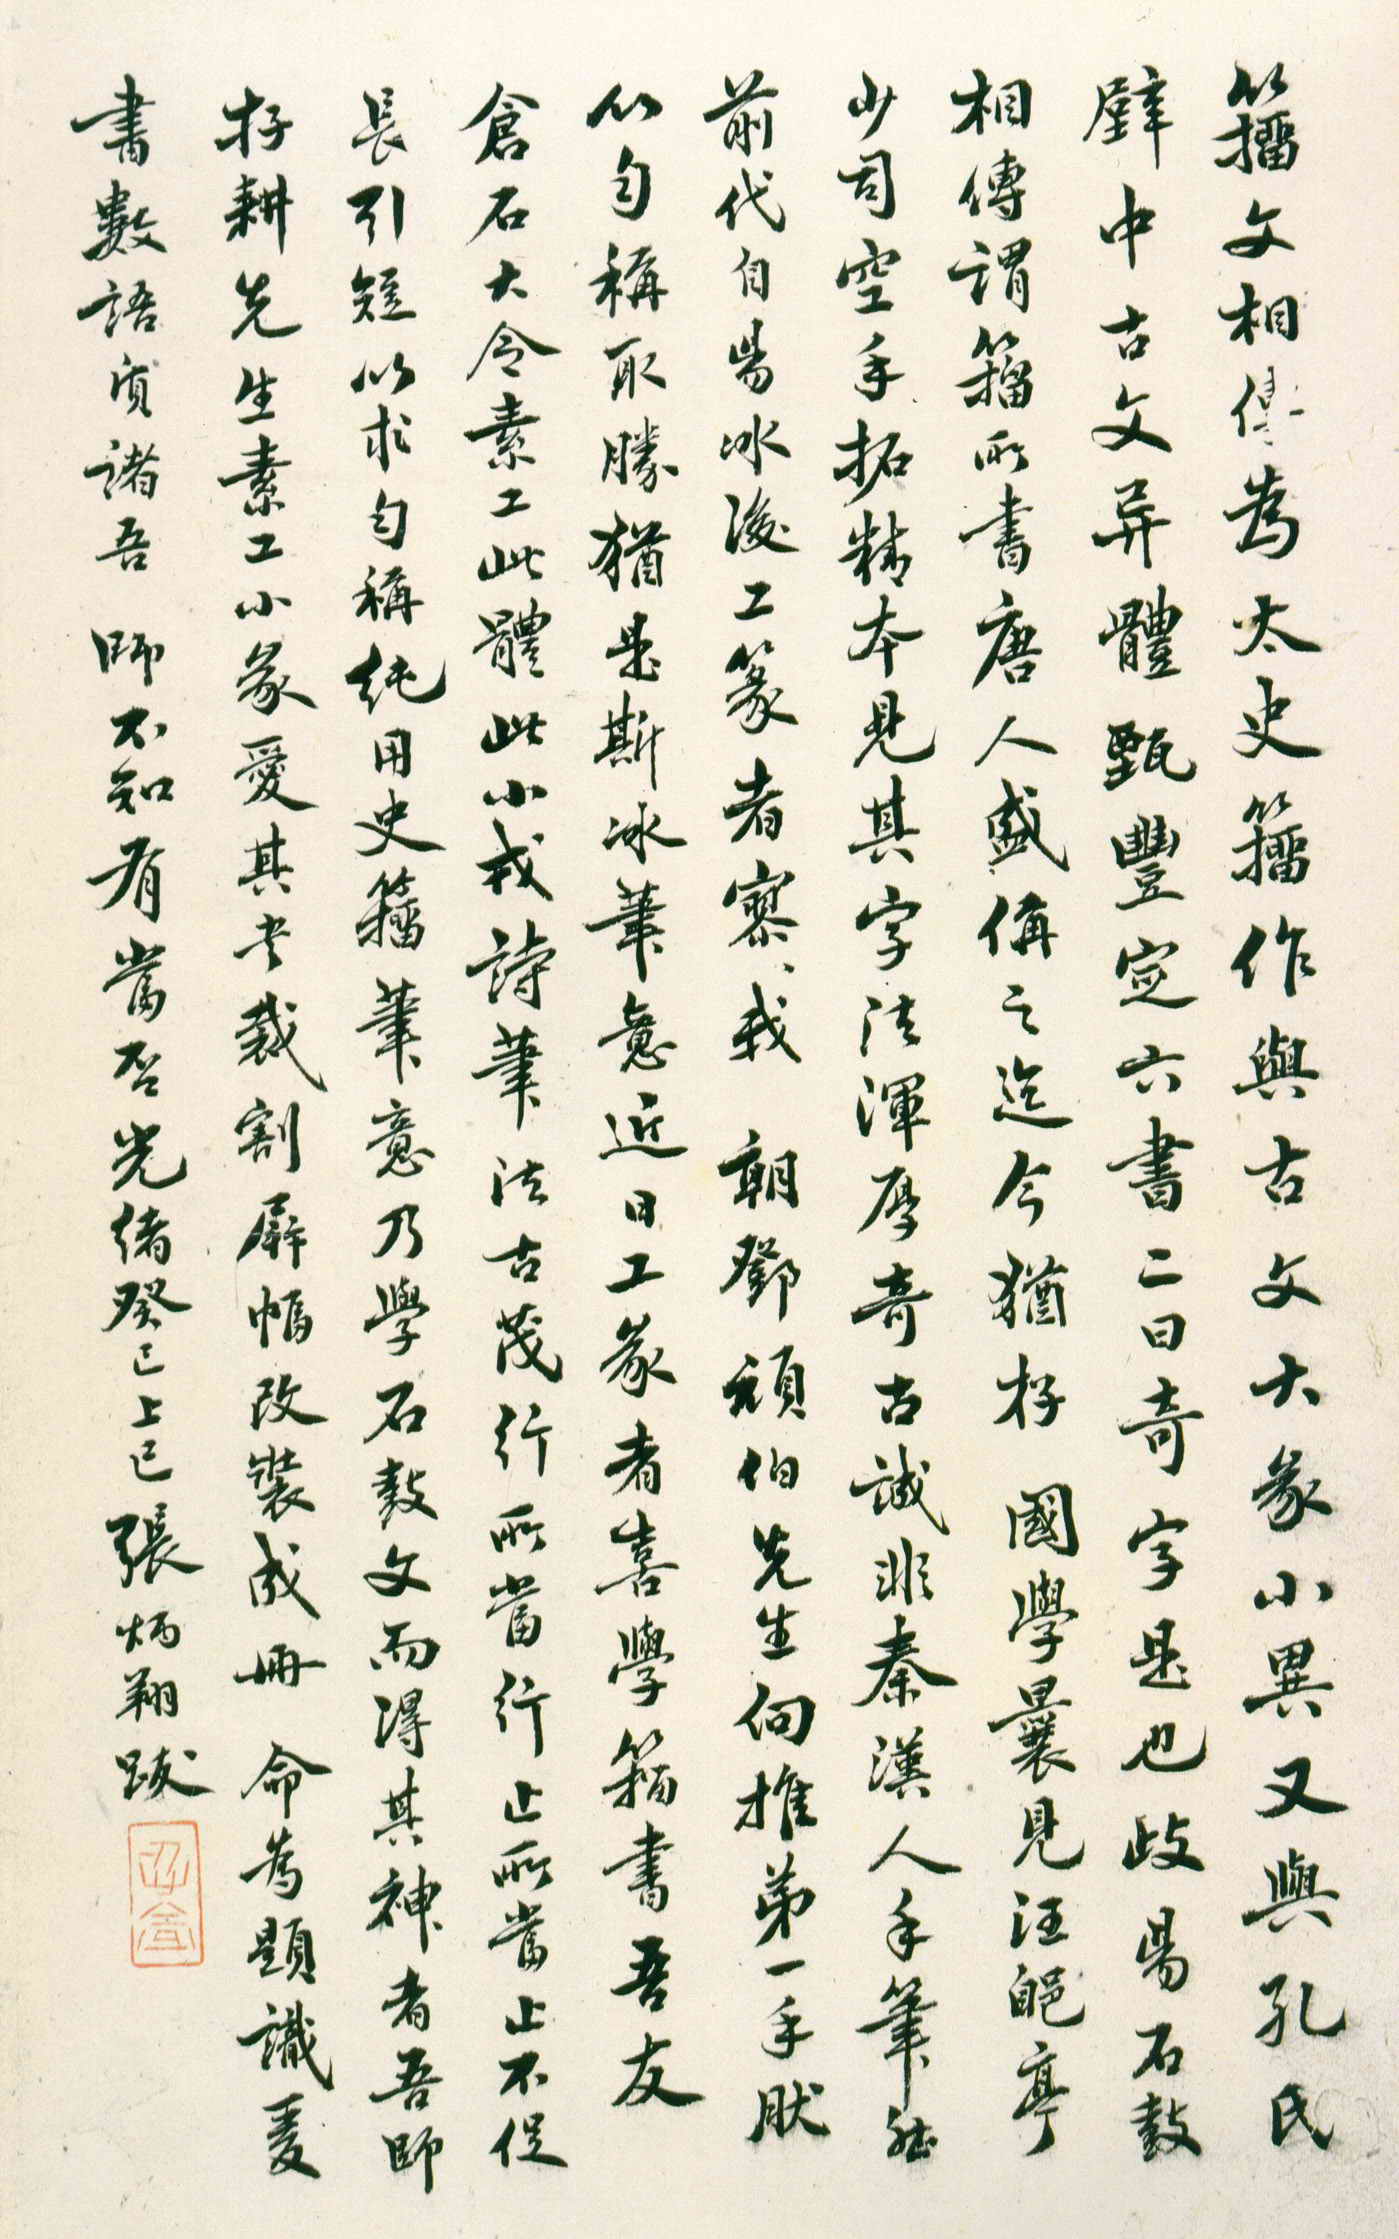 籀文相傳為太史籀作與古文大篆小異又與孔氏
壁中古文异體甄豐定六書二曰奇字是也岐陽石鼓
相傳謂籀所書唐人盛偁之迄今猶存國學曩見汪郋亭
少司空手拓精本見其字法渾厚奇古誠非秦漢人手筆然
前代自陽冰後工篆者寥寥我朝鄧頑伯先生向推第一手肰
以勻稱取勝猶是斯冰筆意近日工篆者喜學籀書吾友
倉石大令素工此體此小戎詩筆法古茂行所當行止所當止不促
長引短以求勻稱純用史籀筆意乃學石鼓文而得其神者吾師
存耕先生素工小篆愛其書裁割屏幅改裝成冊命為題識爰
書數語質諸吾師不知有當否光緒癸巳上巳張炳翔跋